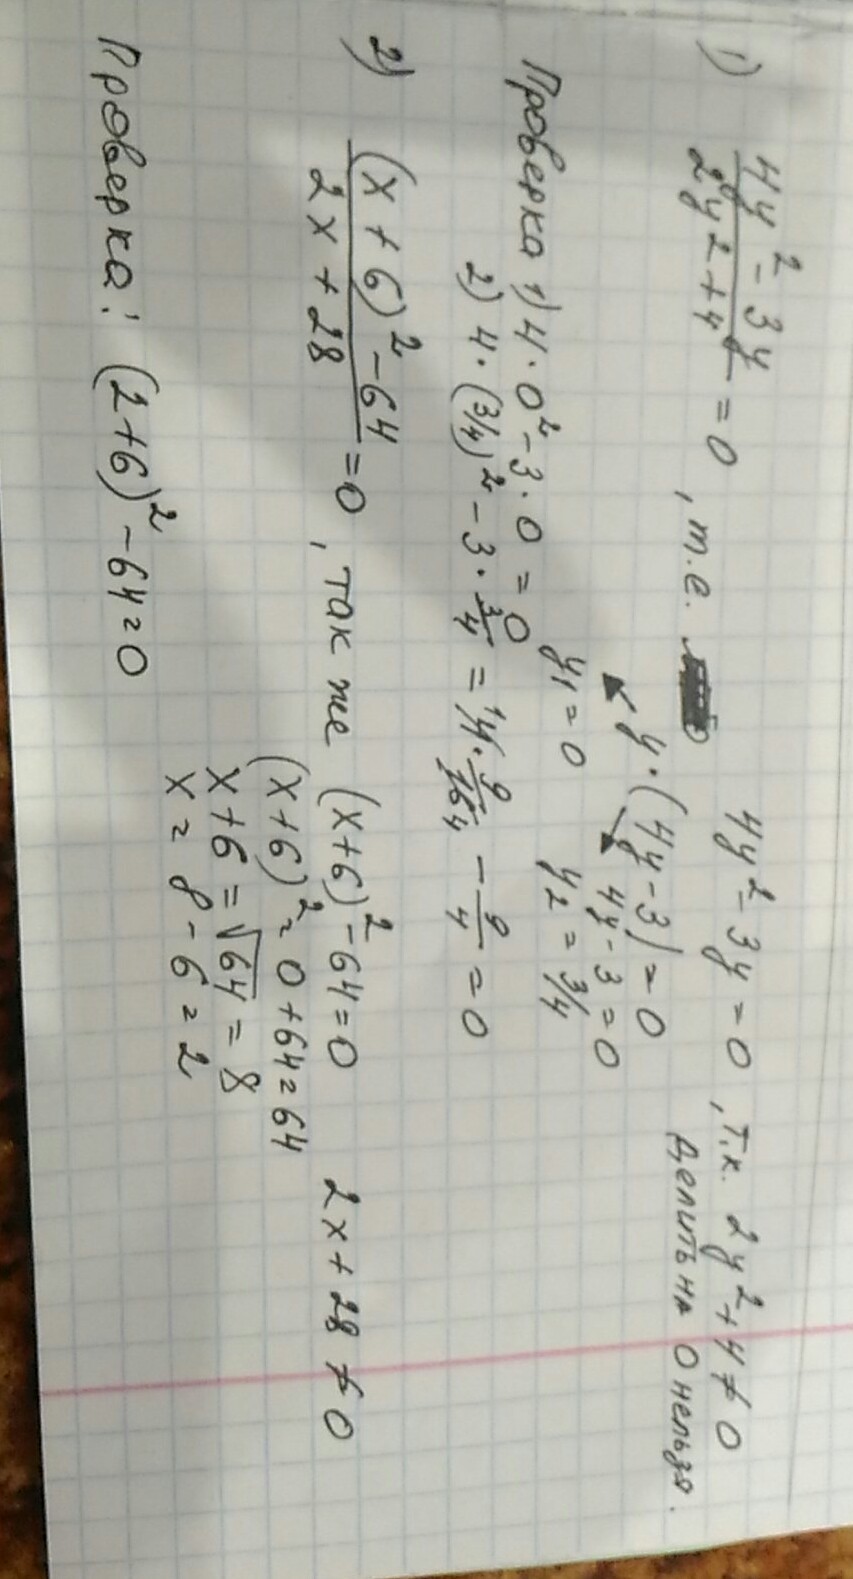 1) (4y² - 3y)/(2y² + 4) = 0 , т.е. 4y² - 3y = 0 , т.к. 2y² + 4 ≠ 0
делить на 0 нельзя.
y · (4y - 3) = 0
4y - 3 = 0
y₁ = 0 y₂ = 3/4
Проверка 1) 4 · 0² - 3 · 0 = 0
2) 4 · (3/4)² - 3 · 3/4 = ¹4 · 9/16₄ - 9/4 = 0
2) ((x + 6)² - 64)/(2x + 28) = 0 , так же (x+6)² - 64 = 0 2x + 28 ≠ 0
(x+6)² = 0 + 64 = 64
x + 6 = √64 = 8
x = 8 - 6 = 2
Проверка: (2+6)² - 64 = 0